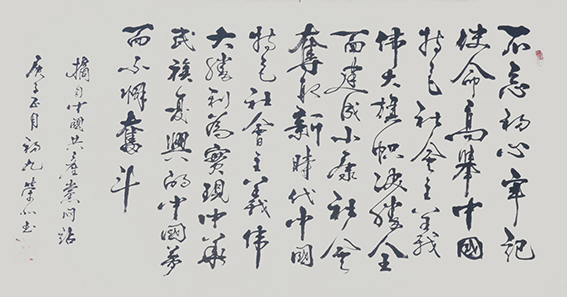 不忘初心牢记
使命高舉中國
特色社会主義
伟大旗帜决勝全
面建成小康社会
奪取新時代中國
特色社會主義伟
大勝利為實现中華
民族复興的中國夢
而不懈奮斗
摘自中國共產黨网站
庚子月初九榮书